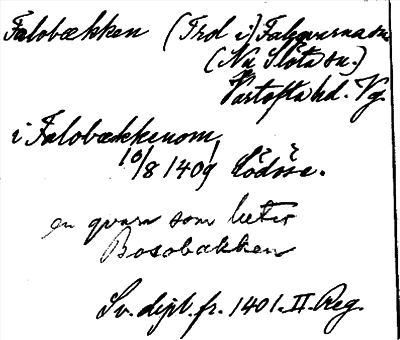 Falobækken (Trol. i) Falquernasn
(Nu Slöta sn.)
Vartofta hd. Vg.
i Falobækkenom,
10/8 1409 Lödose.
en quærn som heter
Bosobækken
Sv. dipl. fr. 1401. II. Reg.